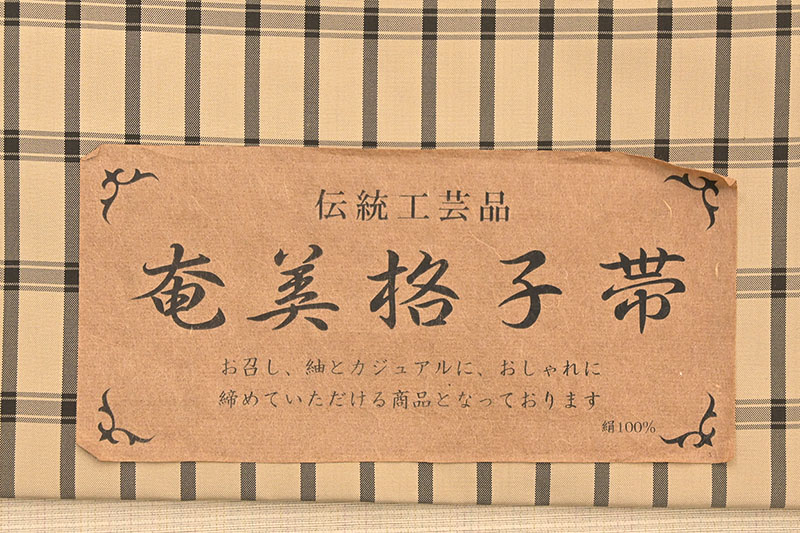 伝統工芸品
奄美格子帯
お召し、紬とカジュアルに、おしゃれに
締めていただける商品となっております
絹100%